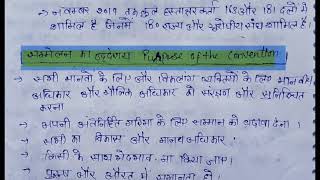 → नवम्बर 2017 तक कुल हस्ताक्षर कर्ता 163 और 181 दलों में
शामिल है जिनमें 180 राज्य और यूरोपीय संघ शामिल है।
सम्मेलन का उद्देश्य Purpose of the Convention
→ सभी मानवों के लिए और विकलांग व्यक्तियों के लिए मानव
अधिकार और मौलिक अधिकार को संरक्षण और सुनिश्चित
करना
→ अपनी अंतर्निहित गरिमा के लिए सम्मान को बढ़ावा देना।
→ सभी का विकास और मानव अधिकार।
→ किसी के साथ भेदभाव ना किया जाए।
→ पुरुष और औरत में समानता हो।